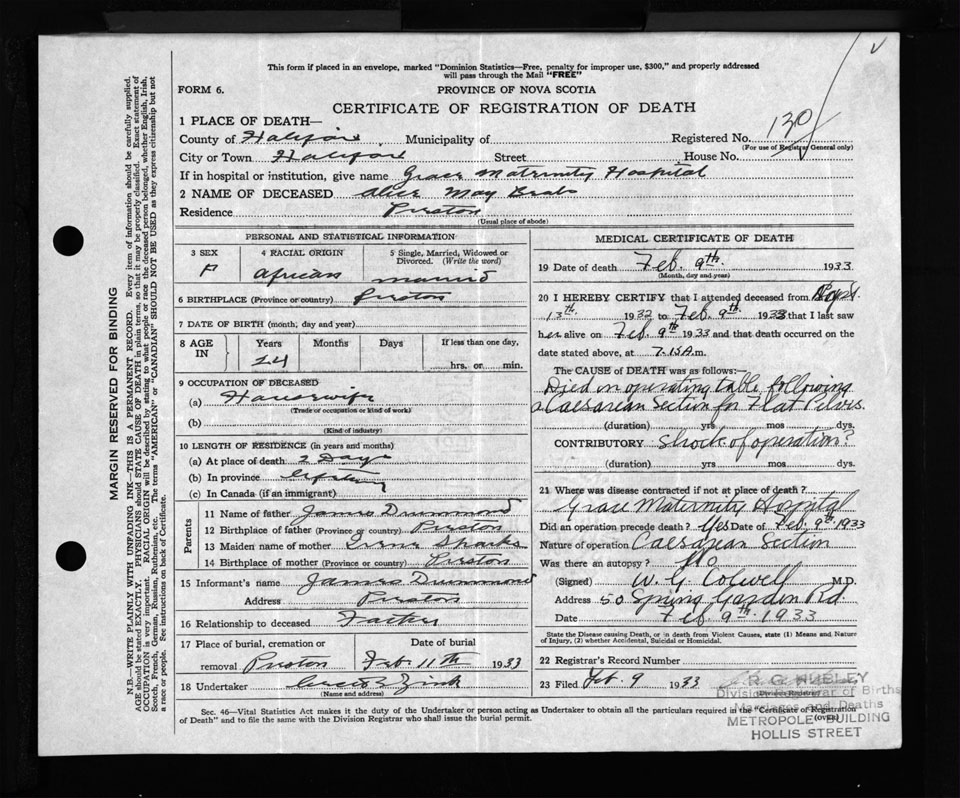 This form if placed in an envelope, marked "Dominion Statistics—Free, penalty for improper use, $300," and properly addressed
will pass through the Mail "FREE"
FORM 6.
PROVINCE OF NOVA SCOTIA
CERTIFICATE OF REGISTRATION OF DEATH
1 PLACE OF DEATH—
County of Halifax Municipality of Registered No. 130
(For use of Registrar General only)
City or Town Halifax Street House No.
If in hospital or institution, give name Grace Maternity Hospital
2 NAME OF DECEASED Alice May Beals
Residence Preston
(Usual place of abode)
PERSONAL AND STATISTICAL INFORMATION
3 SEX 4 RACIAL ORIGIN 5 Single, Married, Widowed or
Divorced. (Write the word)
F African married
6 BIRTHPLACE (Province or country) Preston
7 DATE OF BIRTH (month, day and year)
8 AGE IN Years Months Days If less than one day,
24 hrs. or min.
9 OCCUPATION OF DECEASED
(a) Housewife
(Trade or occupation or kind of work)
(b)
(Kind of industry)
10 LENGTH OF RESIDENCE (in years and months)
(a) At place of death 2 Days
(b) In province Lifetime
(c) In Canada (if an immigrant)
Parents
11 Name of father James Drummond
12 Birthplace of father (Province or country) Preston
13 Maiden name of mother Sparks
14 Birthplace of mother (Province or country) Preston
15 Informant's name James Drummond
Address Preston
16 Relationship to deceased Father
17 Place of burial, cremation or Date of burial
removal Preston Feb. 11th 1933
18 Undertaker Zink
(Name and address)
MEDICAL CERTIFICATE OF DEATH
19 Date of death Feb. 9th. 1933
(Month, day and year)
20 I HEREBY CERTIFY that I attended deceased from
13th 1932 to Feb. 9th 1933 that I last saw
her alive on Feb. 9th 1933 and that death occurred on the
date stated above, at 7.15 A.m.
The CAUSE of DEATH was as follows:-
Died on operating table following
a Caesarean Section for Flat Pelvis.
(duration) yrs mos dys.
CONTRIBUTORY Shock of operation?
(duration) yrs mos dys.
21 Where was disease contracted if not at place of death?
Grace Maternity Hospital
Did an operation precede death? Yes Date of Feb. 9th 1933
Nature of operation Caesarean Section
Was there an autopsy? No
(Signed) W. G. Colwell M.D.
Address 50 Spring Garden Rd.
Date Feb. 9th 1933
State the Disease causing Death, or in death from Violent Causes, state (1) Means and Nature
of Injury, (2) whether Accidental, Suicidal or Homicidal.
22 Registrar's Record Number
23 Filed Feb. 9 1933
(Division Registrar)
R. G. HUBLEY
Division Registrar of Births
Marriages and Deaths
METROPOLE BUILDING
HOLLIS STREET
(OVER)
Sec. 46—Vital Statistics Act makes it the duty of the Undertaker or person acting as Undertaker to obtain all the particulars required in the "Certificate of Registration
of Death" and to file the same with the Division Registrar who shall issue the burial permit.
MARGIN RESERVED FOR BINDING
N.B.—WRITE PLAINLY WITH UNFADING INK—THIS IS A PERMANENT RECORD. Every item of information should be carefully supplied.
AGE should be stated EXACTLY. PHYSICIANS should STATE CAUSE OF DEATH in plain terms, so that it may be properly classified. Exact statement of
OCCUPATION is very important. RACIAL ORIGIN will be described by stating to what people or race the deceased person belonged, whether English, Irish,
Scotch, French, German, Russian, Ruthenian, etc. The terms "AMERICAN" or "CANADIAN" SHOULD NOT BE USED as they express citizenship but not
a race or people. See instructions on back of Certificate.